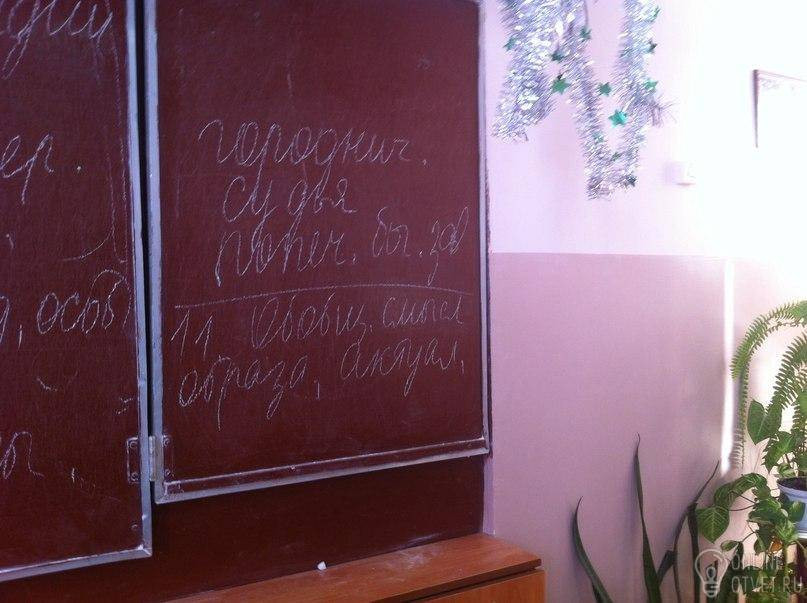 ер.
, особ
городнич.
судья
попеч. бог. зав
11. Обобщ. смысл
образа, актуал.
ONLINE
OTVET.RU